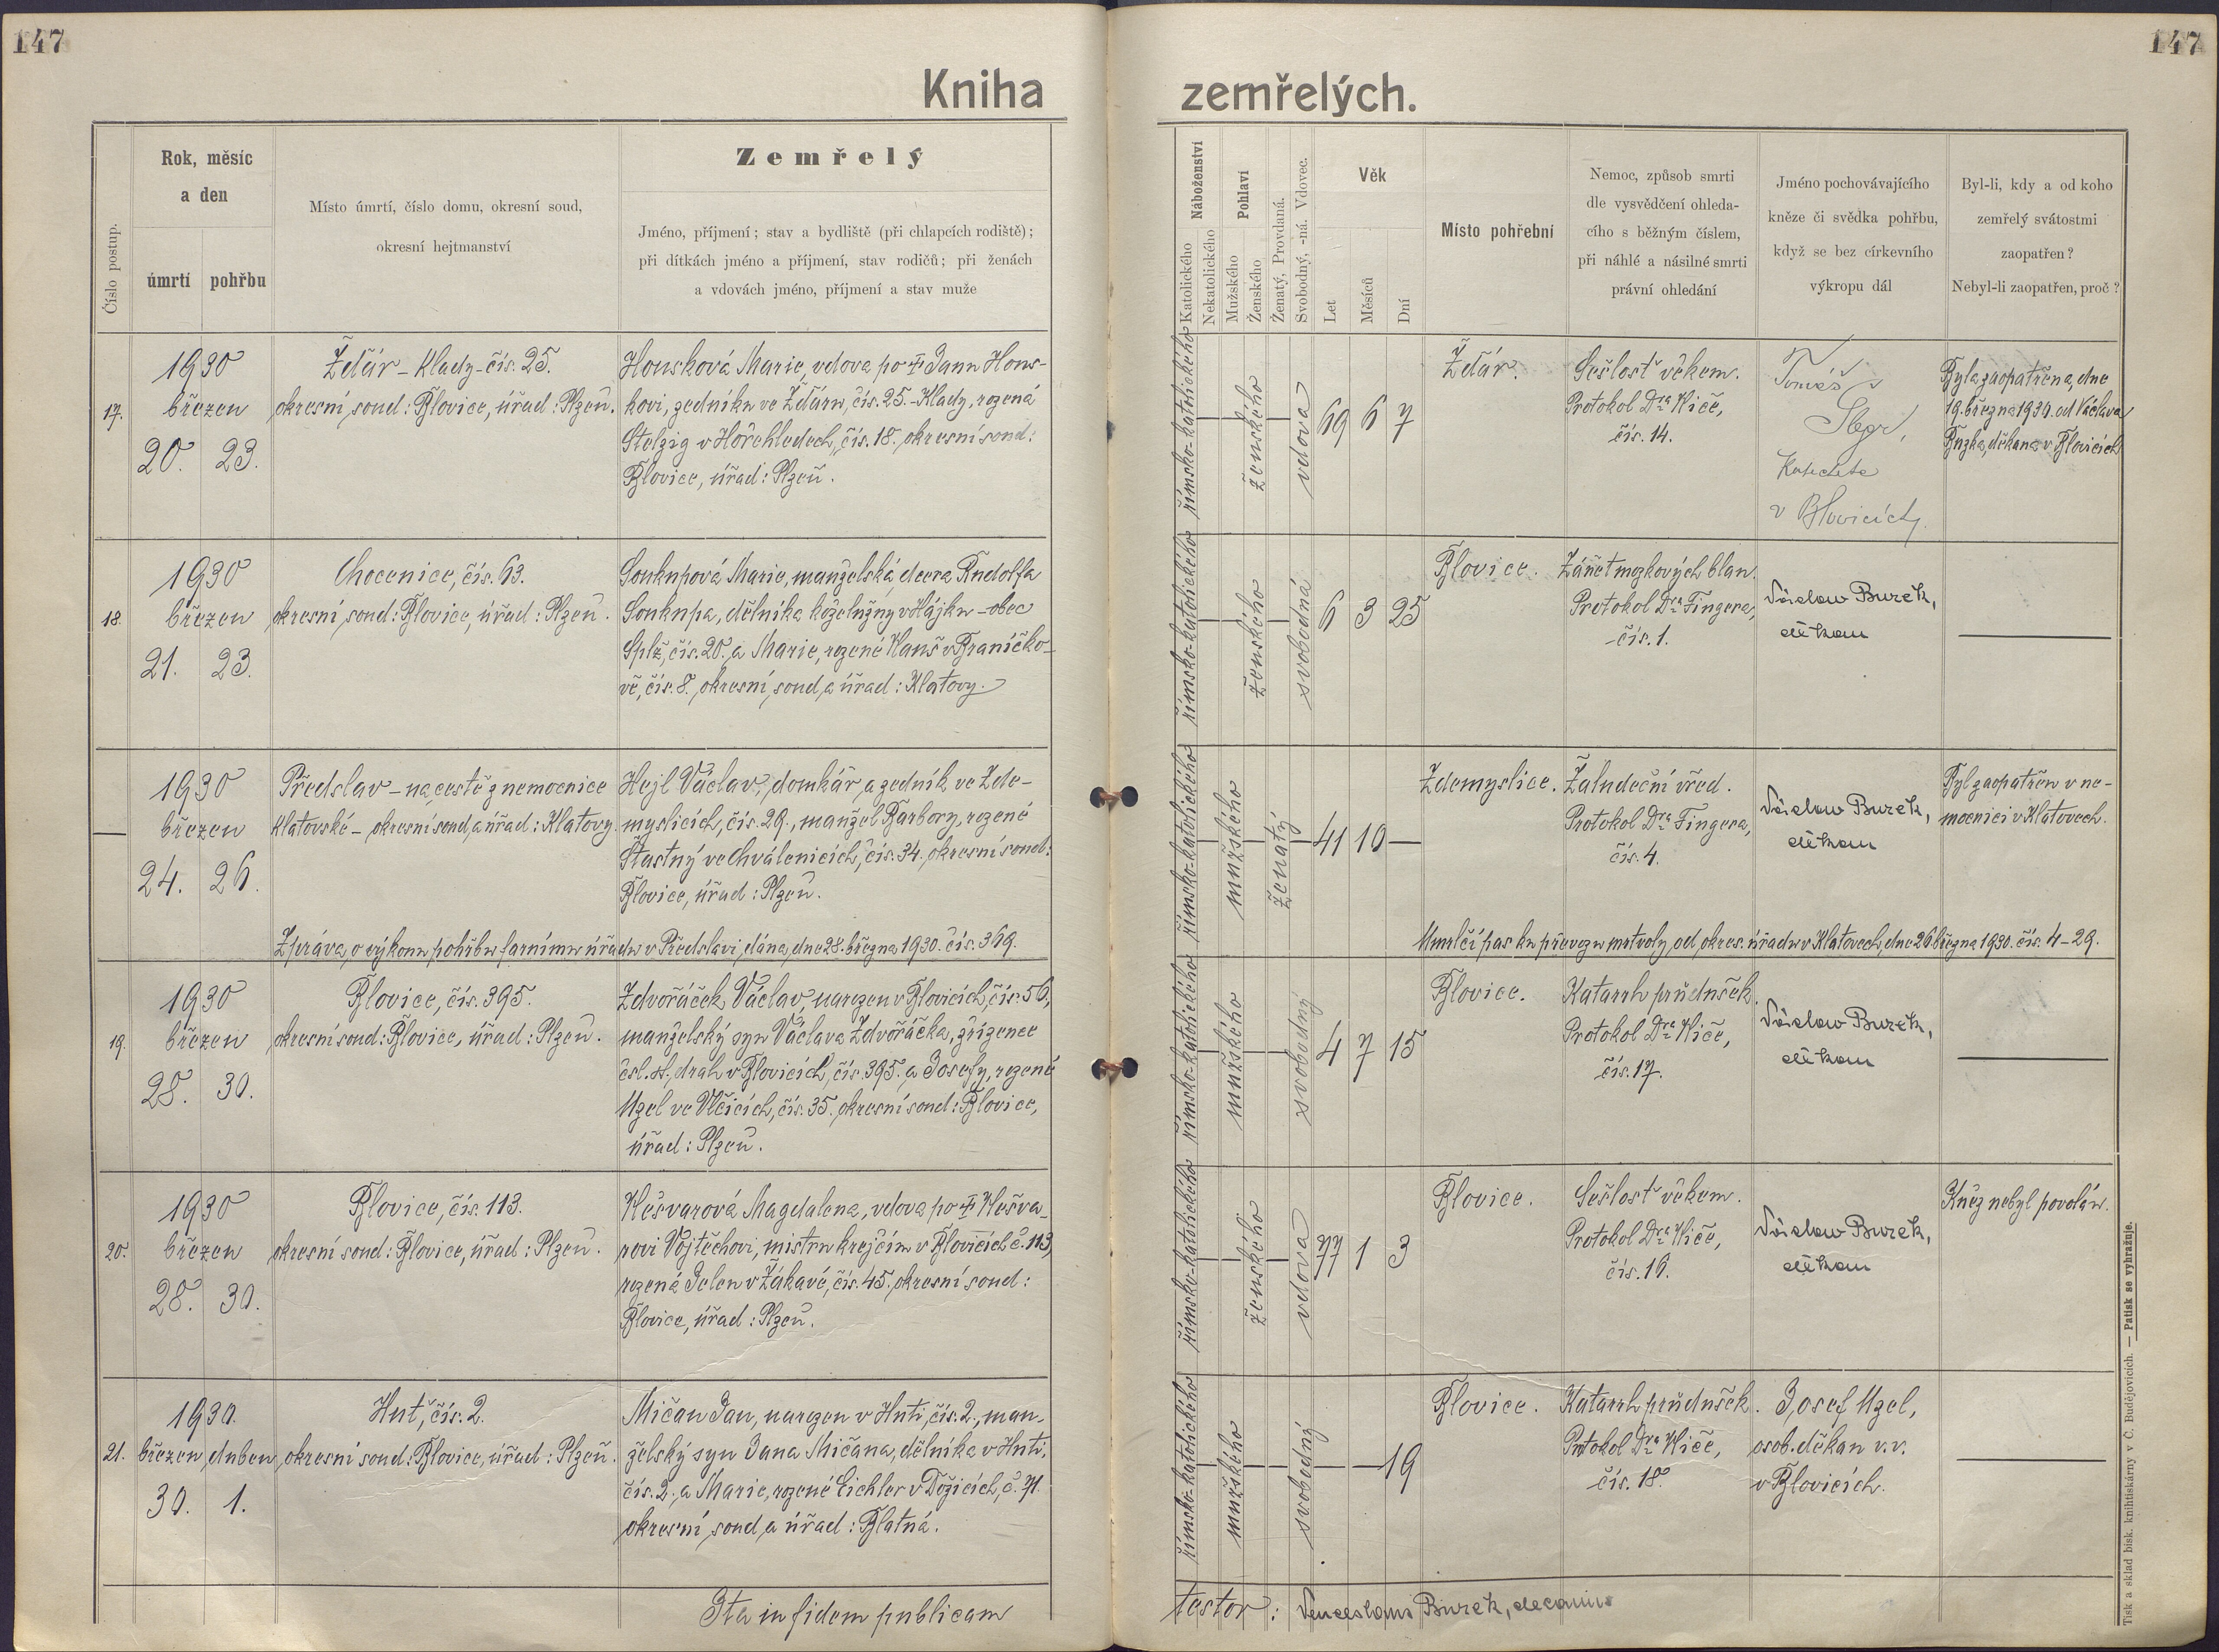 147
147
Kniha
zemřelých.
Číslo postup.
Rok, měsíc
a den
úmrtí
pohřbu
Místo úmrtí, číslo domu, okresní soud,
okresní hejtmanství
Zemřelý
Jméno, příjmení; stav a bydliště (při chlapcích rodiště);
při dítkách jméno a příjmení, stav rodičů; při ženách
a vdovách jméno, příjmení a stav muže
Náboženství
Katolického
Nekatolického
Pohlaví
Mužského
Ženského
Ženatý, Provdaná.
Svobodný, -ná. Vdovec.
Věk
Let
Měsíců
Dní
Místo pohřební
Nemoc, způsob smrti
dle vysvědčení ohleda-
cího s běžným číslem,
při náhlé a násilné smrti
právní ohledání
Jméno pochovávajícího
kněze či svědka pohřbu,
když se bez církevního
výkropu dál
Byl-li, kdy a od koho
zemřelý svátostmi
zaopatřen?
Nebyl-li zaopatřen, proč?
17.
1930
březen
20. 23.
Žďár - Klady - čís. 25.
okresní soud: Blovice, úřad: Plzeň.
Housková Marie, vdova po † Janu Hous-
kovi, zedníku ve Žďáru, čís. 25. - Klady, rozená
Stelzig v Hořehledech, čís. 18. okresní soud:
Blovice, úřad: Plzeň.
římsko-katolického
ženského
vdova
69 6 7
Žďár.
Sešlosť věkem.
Protokol Dra Kiče,
čís. 14.
Tomáš
Slegr,
Katecheta
v Blovicích
Byla zaopatřena, dne
19. března 1930. od Václava
Buzka, děkana v Blovicích
18
1930
březen
21. 23.
Chocenice, čís. 63.
okresní soud: Blovice, úřad: Plzeň.
Soukupová Marie, manželská dcera Rudolfa
Soukupa, dělníka koželužny v Hájku - obec
Splž, čís. 20. a Marie, rozené Hanš v Braníčko-
vě, čís. 8. okresní soud a úřad: Klatovy.
římsko-katolického
ženského
svobodná
6 3 25
Blovice.
Zánět mozkových blan.
Protokol Dra Fingera,
čís. 1.
Václav Buzek,
děkan
1930
březen
24. 26.
Předslav - na cestě z nemocnice
klatovské - okresní soud a úřad: Klatovy
Hejl Václav, domkář a zedník ve Zde-
myslicích, čís. 29., manžel Barbory, rozené
Šťastný ve Chválenicích, čís. 34. okresní soud:
Blovice, úřad: Plzeň.
římsko-katolického
mužského
ženatý
41 10 —
Zdemyslice.
Žaludeční vřed.
Protokol Dra Fingera,
čís. 4.
Václav Buzek,
děkan
Byl zaopatřen v ne-
mocnici v Klatovech.
Zpráva o výkonu pohřbu farnímu úřadu v Předslavi, dána, dne 28. března 1930. čís. 369.
Umrlčí pas ku převozu mrtvoly, od okres. úřadu v Klatovech, dne 26. března 1930. čís. 4-29.
19.
1930
březen
28. 30.
Blovice, čís. 395.
okresní soud: Blovice, úřad: Plzeň.
Zdvořáček Václav, narozen v Blovicích, čís. 56,
manželský syn Václava Zdvořáčka, zřízence
čsl. st. drah v Blovicích, čís. 395. a Josefy, rozené
Uzel ve Vlčicích, čís. 35. okresní soud: Blovice,
úřad: Plzeň.
římsko-katolického
mužského
svobodný
4 7 15
Blovice.
Katarrh průdušek.
Protokol Dra Kiče,
čís. 17.
Václav Buzek,
děkan
20.
1930
březen
28. 30.
Blovice, čís. 113.
okresní soud: Blovice, úřad: Plzeň.
Kešvarová Magdalena, vdova po † Kešva-
rovi Vojtěchovi, mistru krejčím v Blovicích č. 113,
rozená Jelen v Žákavě, čís. 45. okresní soud:
Blovice, úřad: Plzeň.
římsko-katolického
ženského
vdova
77 1 3
Blovice.
Sešlosť věkem.
Protokol Dra Kiče,
čís. 16.
Václav Buzek,
děkan
Kněz nebyl povolán.
21.
1930.
březen duben
30. 1.
Huť, čís. 2.
okresní soud: Blovice, úřad: Plzeň.
Mičan Jan, narozen v Huti, čís. 2., man-
želský syn Jana Mičana, dělníka v Huti,
čís. 2. a Marie, rozené Eichler v Dožicích, č. 71.
okresní soud a úřad: Blatná.
římsko-katolického
mužského
svobodný
19
Blovice.
Katarrh průdušek.
Protokol Dra Kiče,
čís. 18.
Josef Uzel,
osob. děkan v. v.
v Blovicích.
Ita in fidem publicam
testor: Venceslaus Buzek, decanus
Tisk a sklad bisk. knihtiskárny v Č. Budějovicích. — Patisk se vyhražuje.